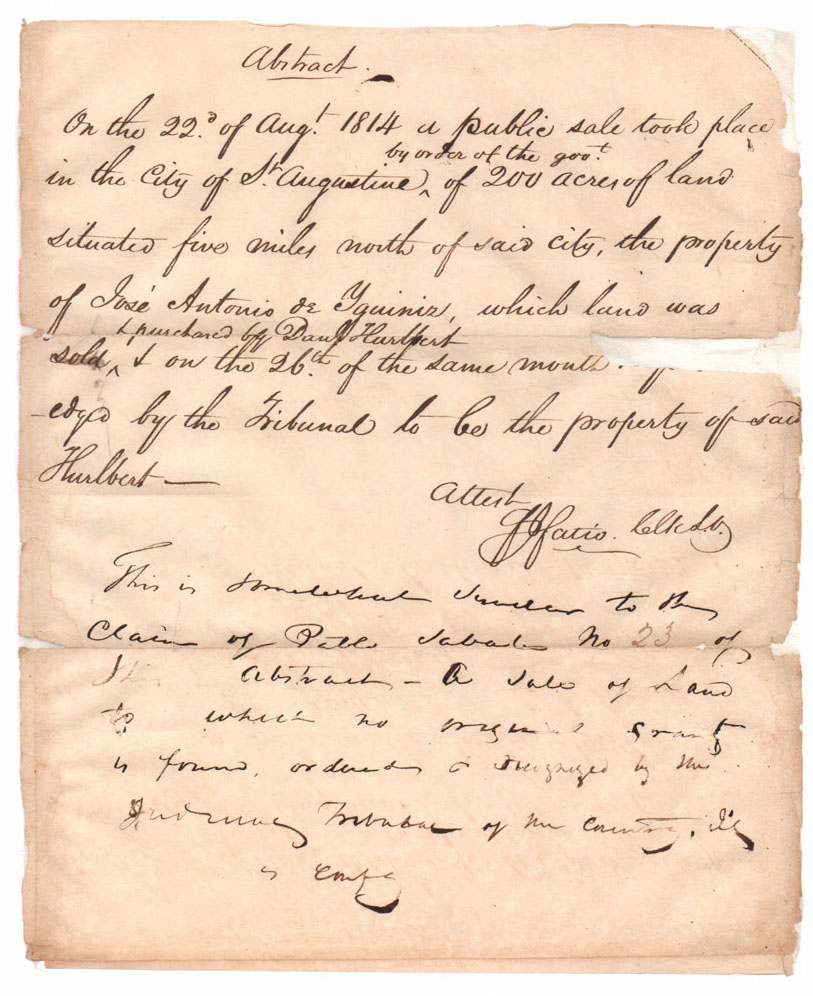 Abstract.
On the 22.d of Augt. 1814 a public sale took place
by order of the govt.
in the City of St. Augustine ^ of 200 acres of land
situated five miles north of said city, the property
of José Antonio de Yguiniz, which land was
& purchased by Danl. Hurlbert
sold ^ & on the 26.th of the same month
-edged by the Tribunal to be the property of said
Hurlbert —
Attest
Fatio. Clk
This is somewhat similar to the
Claim of Pablo Sabate No 23 of
this Abstract – A Sale of Land
to which no original grant
is found, ordered & recognized by the
Judiciary Tribunal of the Country. It
is